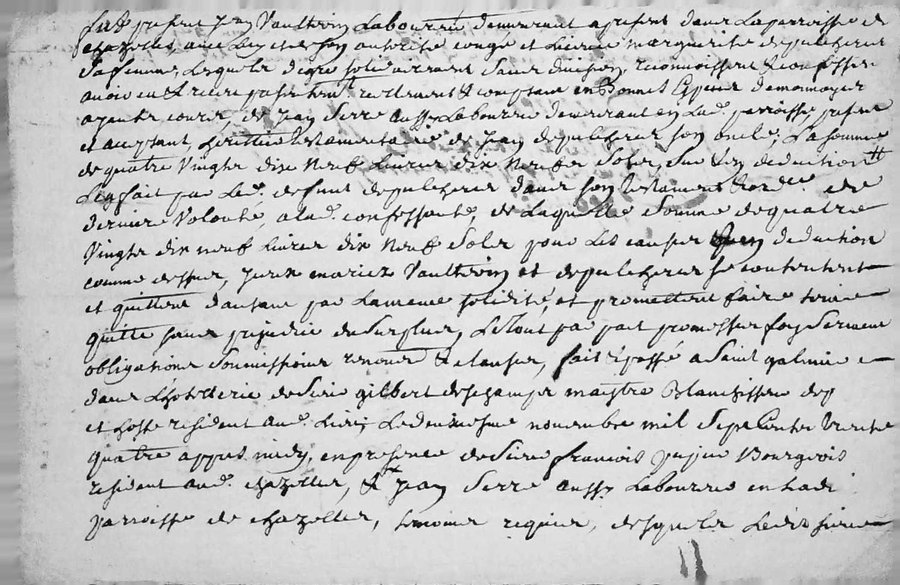 fut present Jean Vaultrin Laboureur demeurant a present dans La parroisse de
chazelles, avec Luy et de son autorité congé et Licence marguerite depulcherieu
sa femme, Lesquels de gré solidairement sans division, reconnoissent & confessent
avoir eu & receu presentement reellement & comptant en bonnes Especes de monnoyes
ayant cours, de Jean Serre aussy Laboureur demeurant en lad. parroisse present
et acceptant, heritier testamentaire de Jean depulcherieu son oncle, La somme
de quatre Vingts dix Neuf Livres dix Neuf Sols, Sur & en deduction #
Leg fait par Led. deffunt depulcherieu dans son testament & ord.ce de
derniere Volonté, a lad. confessante, de Laquelle Somme de quatre
Vingts dix neuf Livres dix Neuf Sols pour Les causes & en deduction
comme dessus, Yceux mariez Vaultrin et depulcherieu se contentent
et quittent d'autant par La meme solidité, et promettent faire tenir
quitte sans prejudice du Surplus, Le tout par pait promesses foy Serment
obligations Soumissions renon.ons & clauses, fait & passé a Saint galmier
dans L'hotellerie de Sieur gilbert deschamps maistre Blanchisseur de
et hoste resident aud. Lieu, Le deuxiesme novembre mil Sept Cents trente
quatre appres midy, en presence de Sieur francois Jujeu Bourgeois
resident aud. chazelles, & Jean Serre aussy Laboureur en Lad.
parroisse de chazelles, temoins requis, desquels Led. sieur